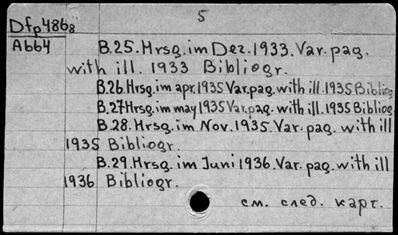 5
Dfp486₈
Ab64
B.25. Hrsg. im Dez. 1933. Var. pag.
with ill. 1933 Bibliogr.
B.26. Hrsg. im apr. 1935 Var. pag. with ill. 1935 Bibliog
B.27 Hrsg. im may 1935 Var. pag. with ill. 1935 Bibliog
B.28. Hrsg. im Nov. 1935. Var. pag. with ill
1935 Bibliogr.
B.29. Hrsg. im Juni 1936. Var. pag. with ill
1936 Bibliogr.
см. след. карт.